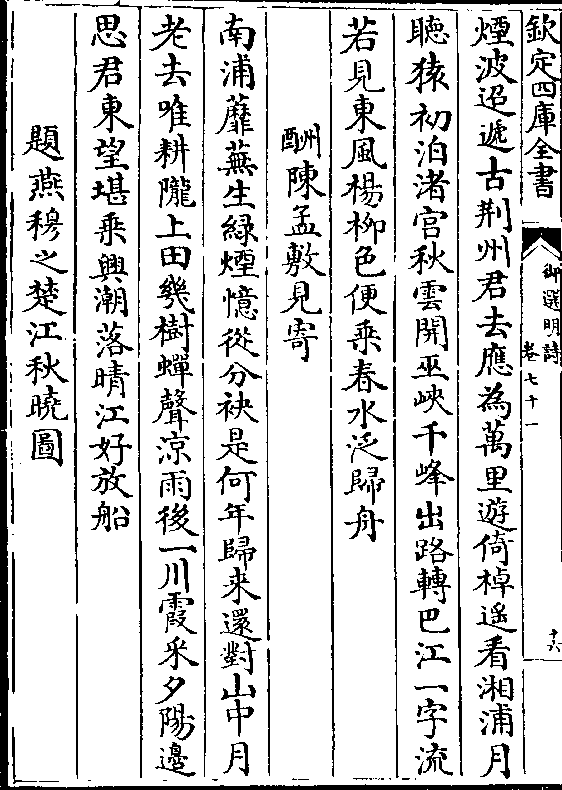 欽定四庫全書
御選明詩
卷七十一
十六
煙波迢遞古荆州君去應為萬里遊倚棹遥看湘浦月
聴猿初泊渚宫秋雲開巫峽千峰出路轉巴江一字流
若見東風楊柳色便乗春水泛歸舟
酬陳孟敷見寄
南浦蘼蕪生緑煙憶從分袂是何年歸来還對山中月
老去唯耕隴上田幾樹蟬聲凉雨後一川霞采夕陽邉
思君東望堪乗興潮落晴江好放船
題燕穆之楚江秋曉圖